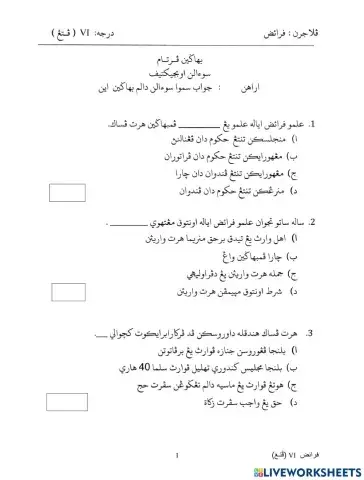 ڤلاجرن : فرائض
درجه: VI ( ڤتڠ )
بهاݢين ڤرتام
سوءالن اوبجيكتيف
اراهن : جواب سموا سوءالن دالم بهاݢين اين
1. علمو فرائض اياله علمو يڠ ________ ڤمبهاݢين هرت ڤساك.
ا) منجلسكن تنتڠ حكوم دان
ب) مڠهورايكن تنتڠ حكوم دان ڤراتوران
ج) مڠهورايكن تنتڠ ڤندوان دان چارا
د) تنتڠ حكوم دان ڤندوان
2. ساله ساتو توجوان علمو فرائض اياله اونتوق مڠتهوي ________ .
ا) اهل وارث يڠ تيدق برحق منريما هرت وارثن
ب) چارا ڤمبهاݢين
ج) جمله هرت وارثن يڠ دڤراوليهي
د) شرط اونتوق مپيمڤن هرت وارثن
3. هرت ڤساك هندقله داوروسكن كجوالي __.
ا) بلنجا ڤڠوروسن جنازه ڤوارث يڠ
ب) بلنجا مجليس كندوري تهليل ڤوارث سلما 40 هاري
ج) هوتڠ ڤوارث يڠ ماسيه دالم تڠݢوڠن سڤرت حج
د) حق يڠ واجب سڤرت زكاة
1
فرائض VI (ڤتڠ)
LIVEWORKSHEETS